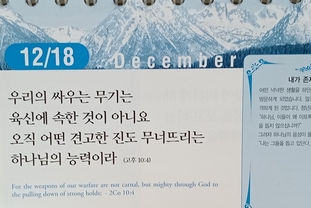 12/18
December
우리의 싸우는 무기는
육신에 속한 것이 아니요
오직 어떤 견고한 진도 무너뜨리는
하나님의 능력이라 (고후 10:4)
For the weapons of our warfare are not carnal, but mighty through God to
the pulling down of strong holds; - 2Co 10:4
내가 존